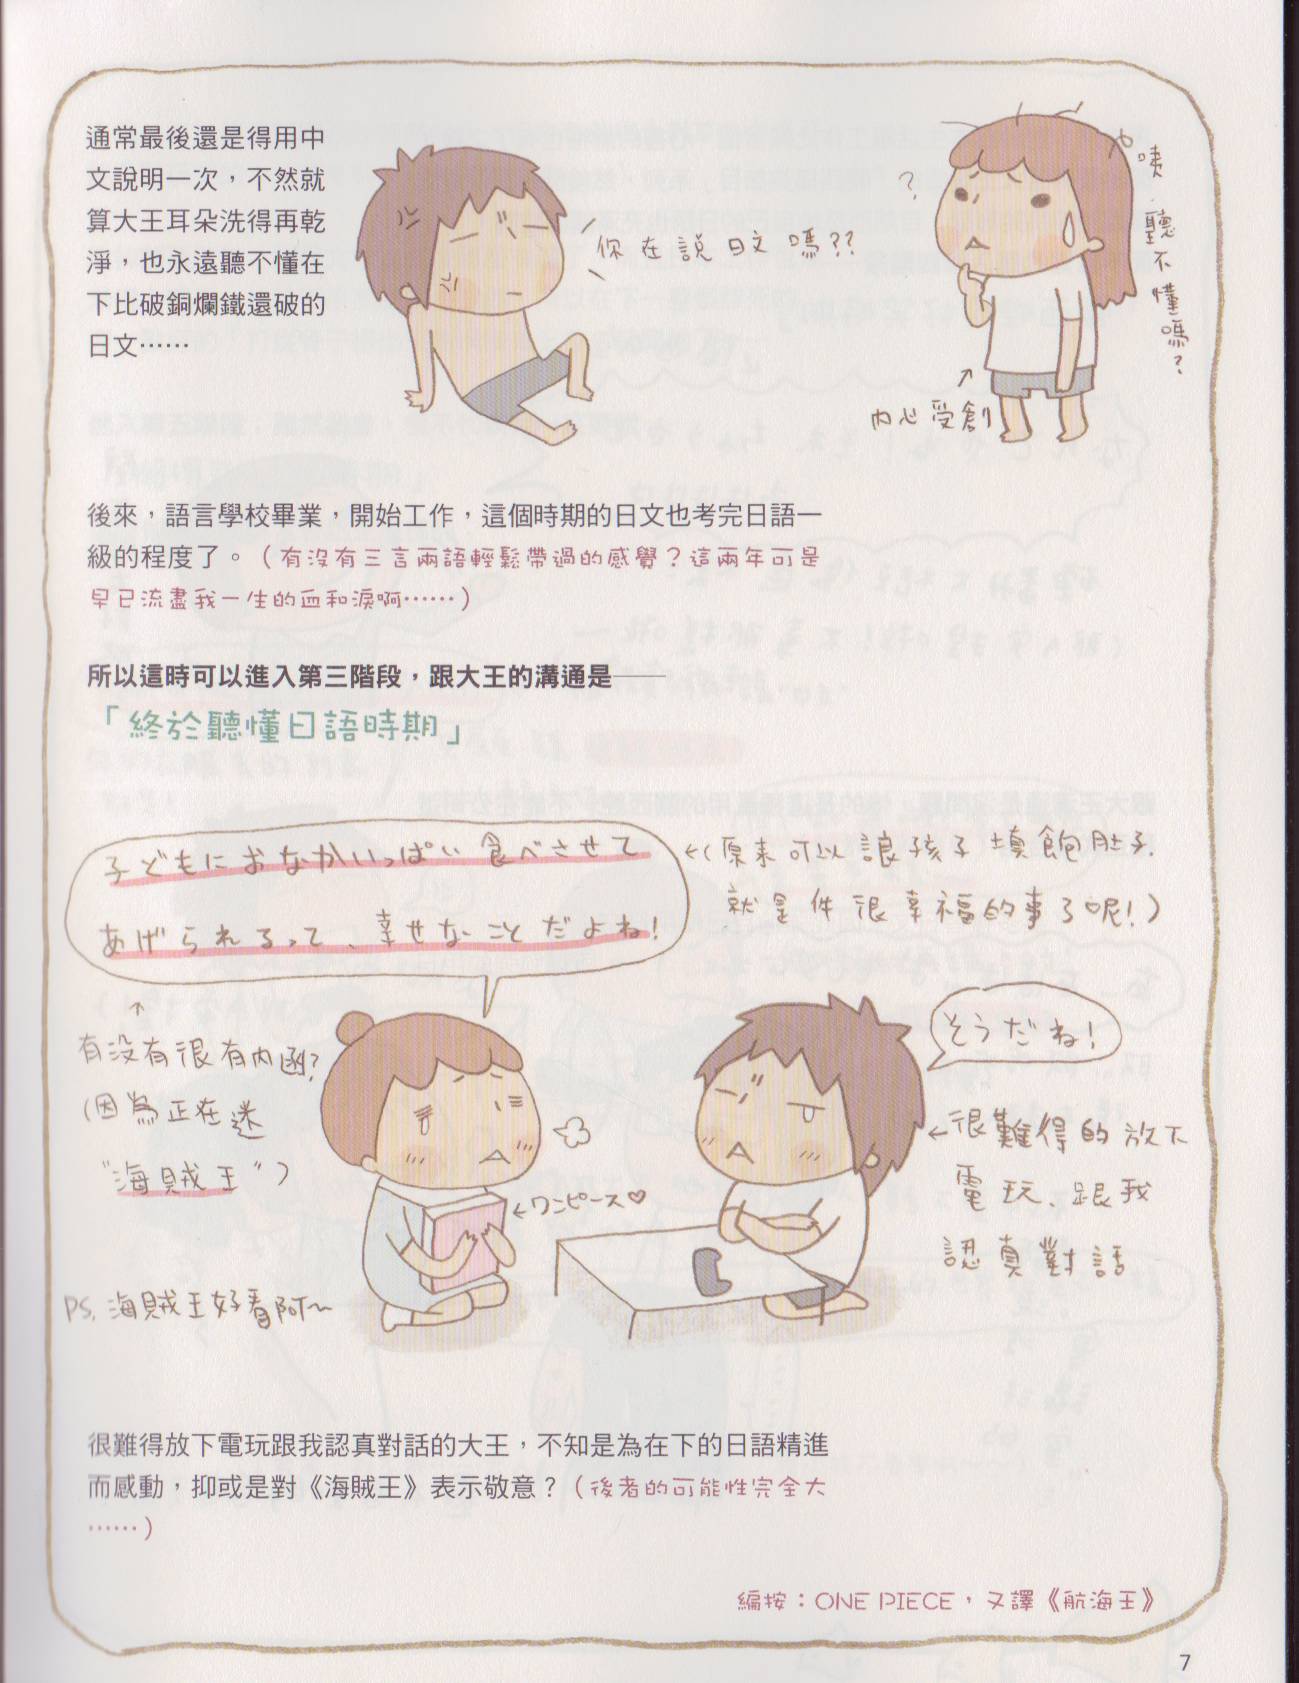 通常最後還是得用中
文說明一次，不然就
算大王耳朵洗得再乾
淨，也永遠聽不懂在
下比破銅爛鐵還破的
日文……
你在說日文嗎??
?
咦
聽不懂嗎?
內心受創
後來，語言學校畢業，開始工作，這個時期的日文也考完日語一
級的程度了。（有沒有三言兩語輕鬆帶過的感覺？這兩年可是
早已流盡我一生的血和淚啊……）
所以這時可以進入第三階段，跟大王的溝通是——
「終於聽懂日語時期」
子どもにおなかいっぱい食べさせて
あげられるって、幸せなことだよね!
(原來可以讓孩子填飽肚子,
就是件很幸福的事了呢!)
有沒有很有內函?
(因為正在迷
"海賊王")
そうだね!
很難得的放下
電玩、跟我
認真對話
ワンピース♡
PS, 海賊王好看阿~
很難得放下電玩跟我認真對話的大王，不知是為在下的日語精進
而感動，抑或是對《海賊王》表示敬意？（後者的可能性完全大
……）
編按：ONE PIECE，又譯《航海王》
7